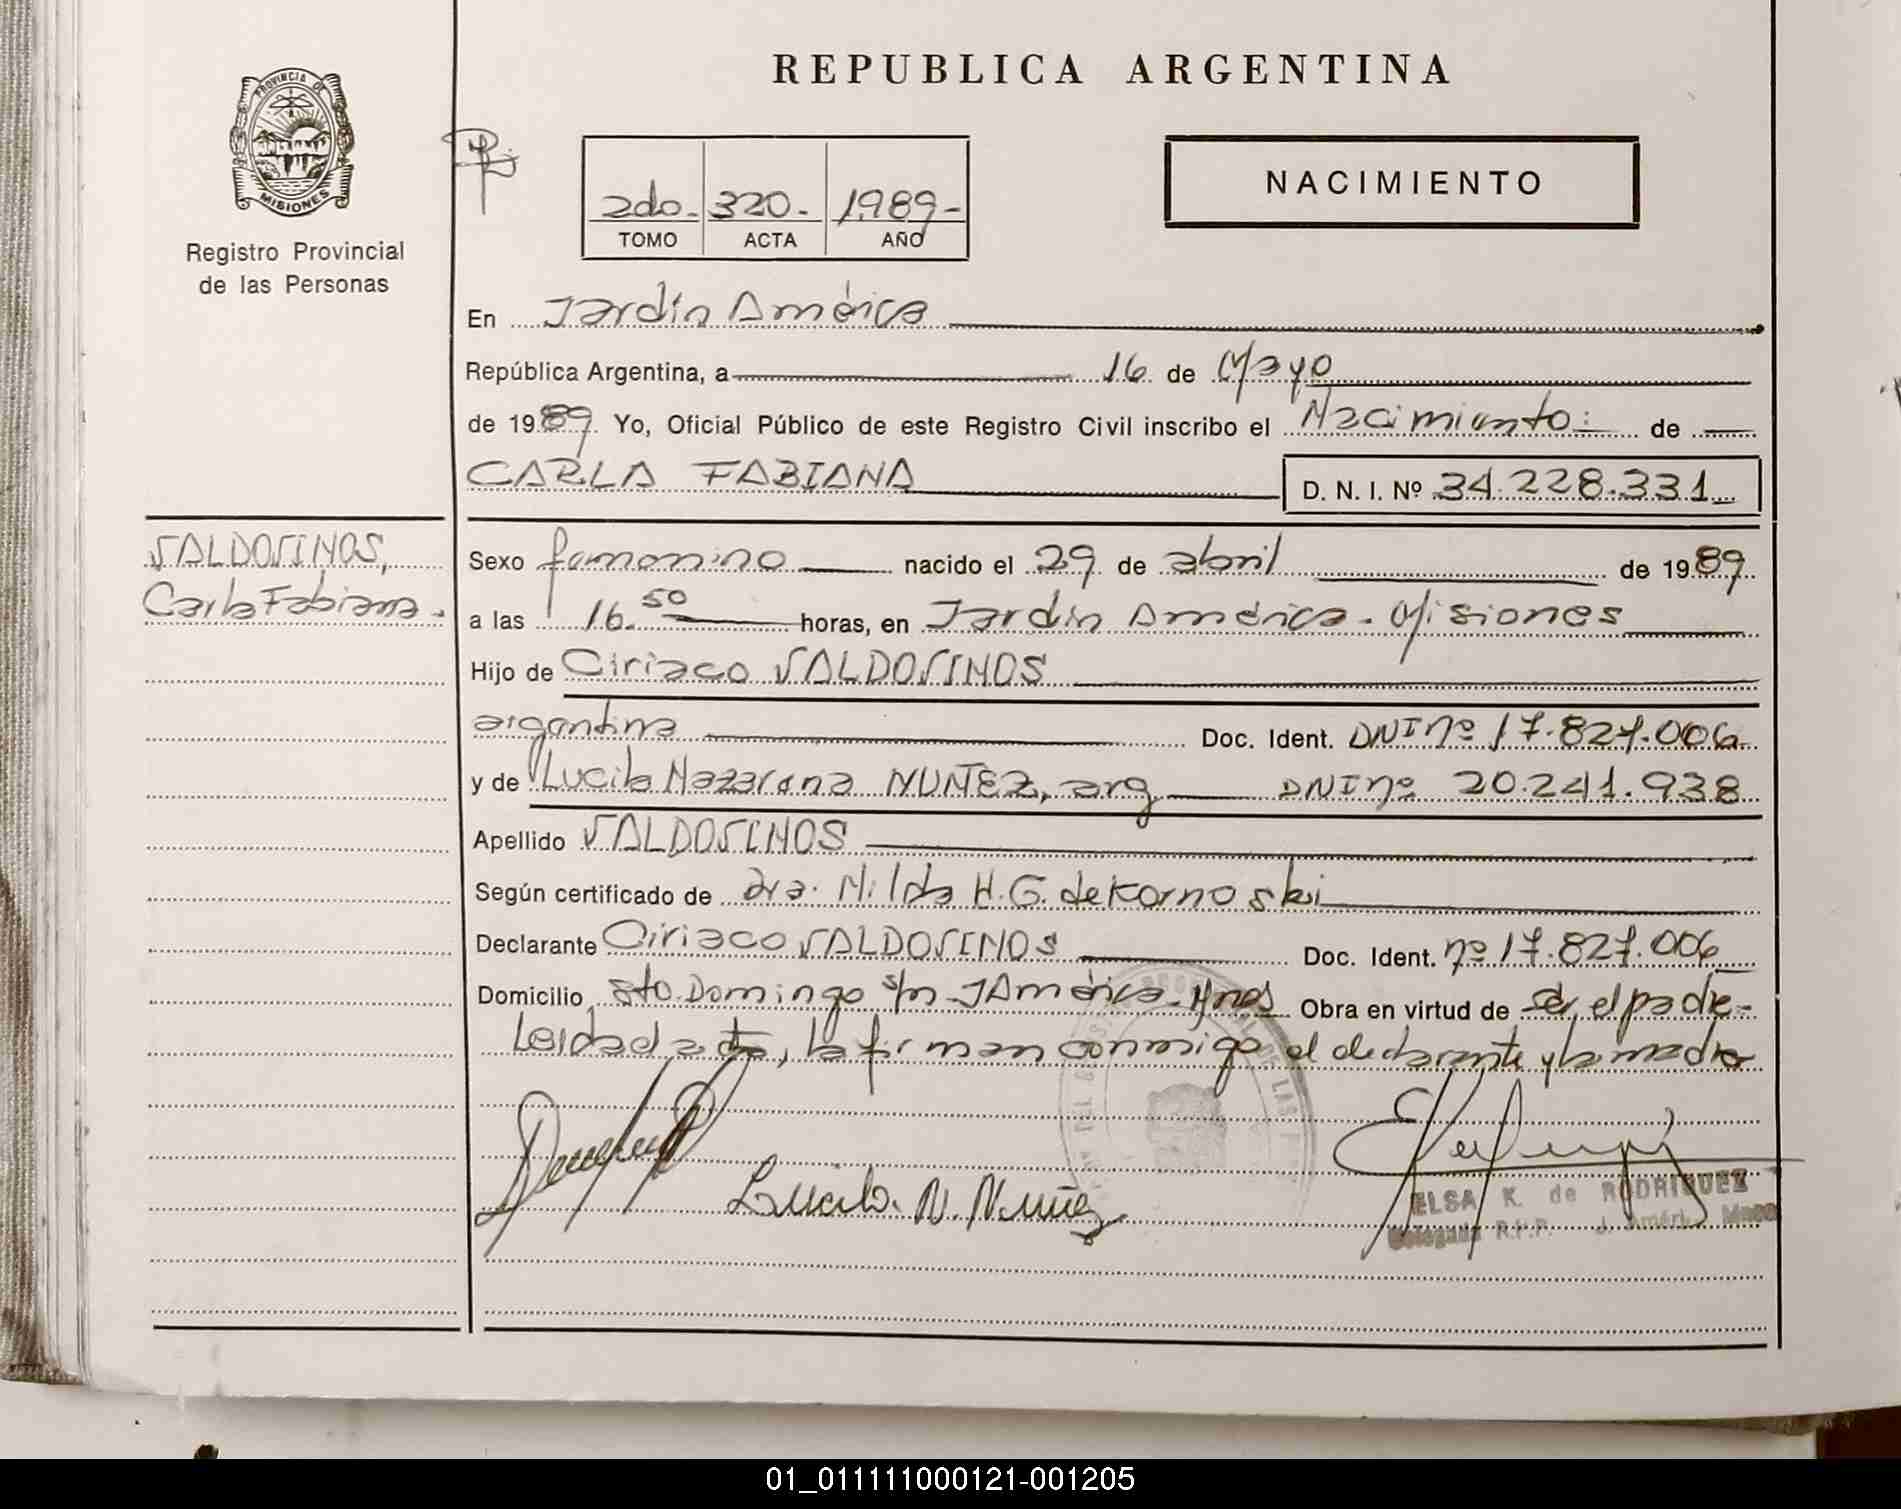 REPUBLICA ARGENTINA
PROVINCIA DE MISIONES
Registro Provincial
de las Personas
2do. 320. 1989
TOMO ACTA AÑO
NACIMIENTO
En Jardín América
República Argentina, a 16 de Mayo
de 1989 Yo, Oficial Público de este Registro Civil inscribo el Nacimiento: de
CARLA FABIANA D. N. I. Nº 34.228.331
VALDOVINOS,
Carla Fabiana.
Sexo femenino nacido el 29 de abril de 1989
a las 16.50 horas, en Jardín América. Misiones
Hijo de Ciriaco VALDOVINOS
argentina Doc. Ident. DNI nº 17.827.006
y de Lucila Nazarena NUÑEZ, arg DNI nº 20.241.938
Apellido VALDOVINOS
Según certificado de dra. Nilda H. G. de Kornoski
Declarante Ciriaco VALDOVINOS Doc. Ident. nº 17.827.006
Domicilio Sto. Domingo s/n J América. Mnes Obra en virtud de ser el padre-
Leída el acta, la firman conmigo el declarante y la madre
Lucila. N. Nuñez
ELSA K. de RODRIGUEZ
Delegada R.P.P. J. Améri. Mnes
01_011111000121-001205